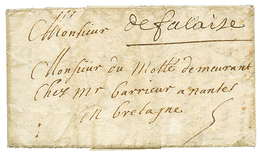 Monsieur
de falaise
Monsieur du Motté demeurant
Chez Mr barrieur a nantes
en bretagne